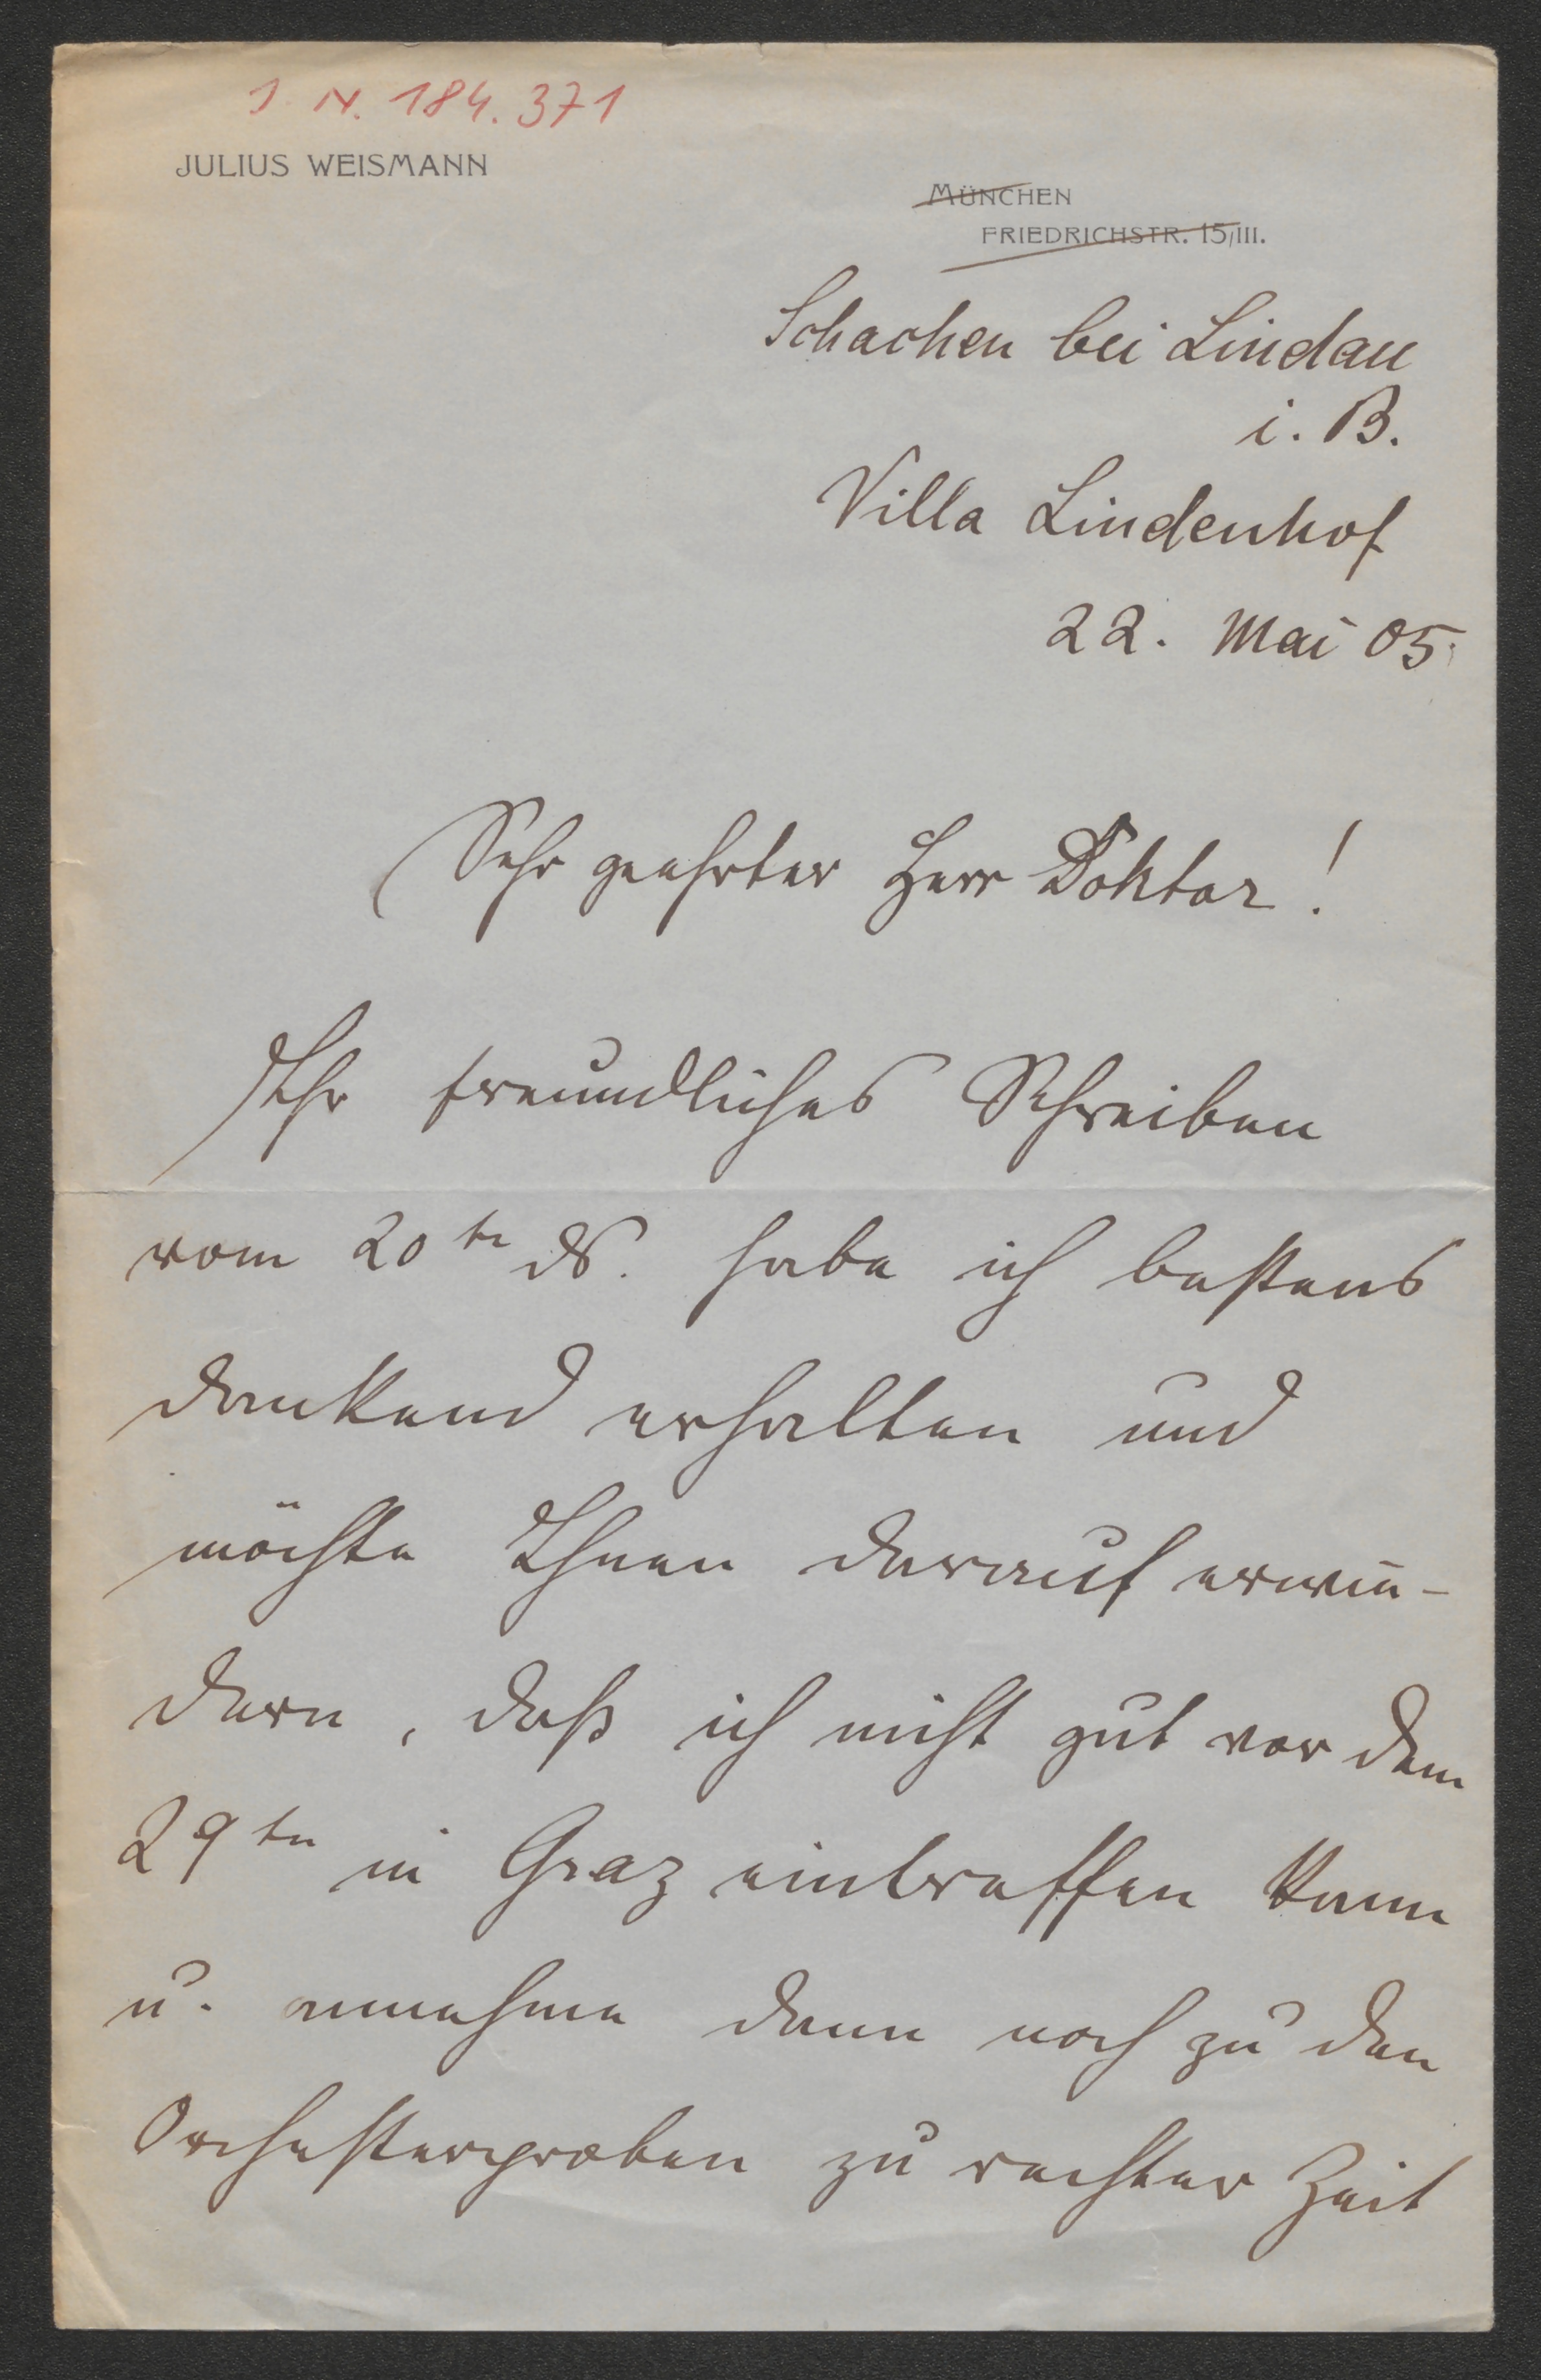 J. N. 184.371
JULIUS WEISMANN
MÜNCHEN
FRIEDRICHSTR. 15/III.
Schachen bei Lindau
i. B.
Villa Lindenhof
22. Mai 05.
Sehr geehrter Herr Doktor!
Ihr freundliches Schreiben
vom 20ten ds. habe ich bestens
dankend erhalten und
möchte Ihnen darauf erwie-
dern, daß ich nicht gut vor dem
29ten in Graz eintreffen kann
u. annehme dann noch zu den
Orchesterproben zu rechter Zeit